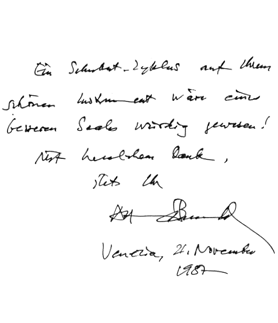 Ein Schubert-Zyklus auf Ihrem
schönen Instrument wäre eines
besseren Saales würdig gewesen!
Mit herzlichem Dank,
stets Ihr
Venezia, 21. November
1987